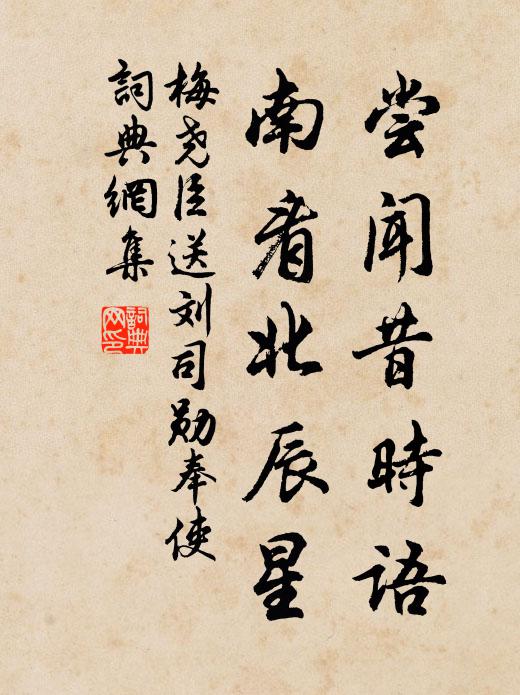 尝闻昔時語
南看北辰星
梅尧臣送刘司勋奉使
詞典網集
詞典网印